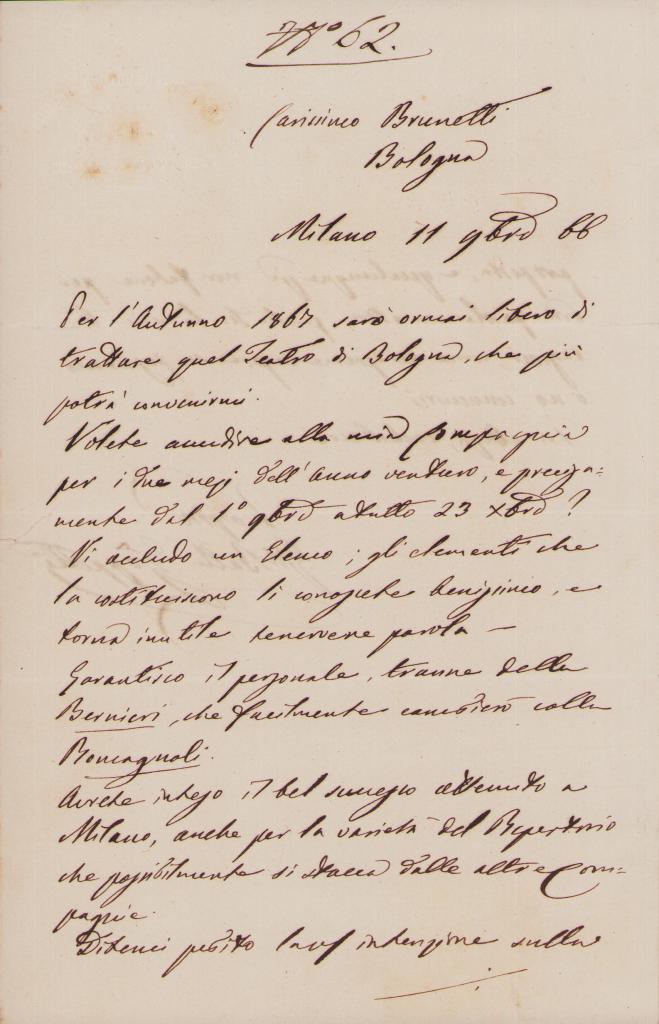 N° 62.
Carissimo Brunetti
Bologna
Milano 11 9brē 66
Per l'Autunno 1867 sarò ormai libero di
trattare quel Teatro di Bologna, che più
potrà convenirmi.
Volete accudire alla mia Compagnia
per i due mesi dell'anno venturo, e precisa-
mente dal 1° 9brē a tutto 23 Xbrē?
Vi accludo un Elenco; gli elementi che
la costituiscono li conoscete benissimo, e
torna inutile tenervene parola —
Garantisco il personale, tranne della
Bernieri, che facilmente cambierò colla
Romagnoli.
Avrete inteso il bel successo ottenuto a
Milano, anche per la varietà del Repertorio
che possibilmente si stacca dalle altre Com-
pagnie.
Ditemi subito la vs intenzione sulla